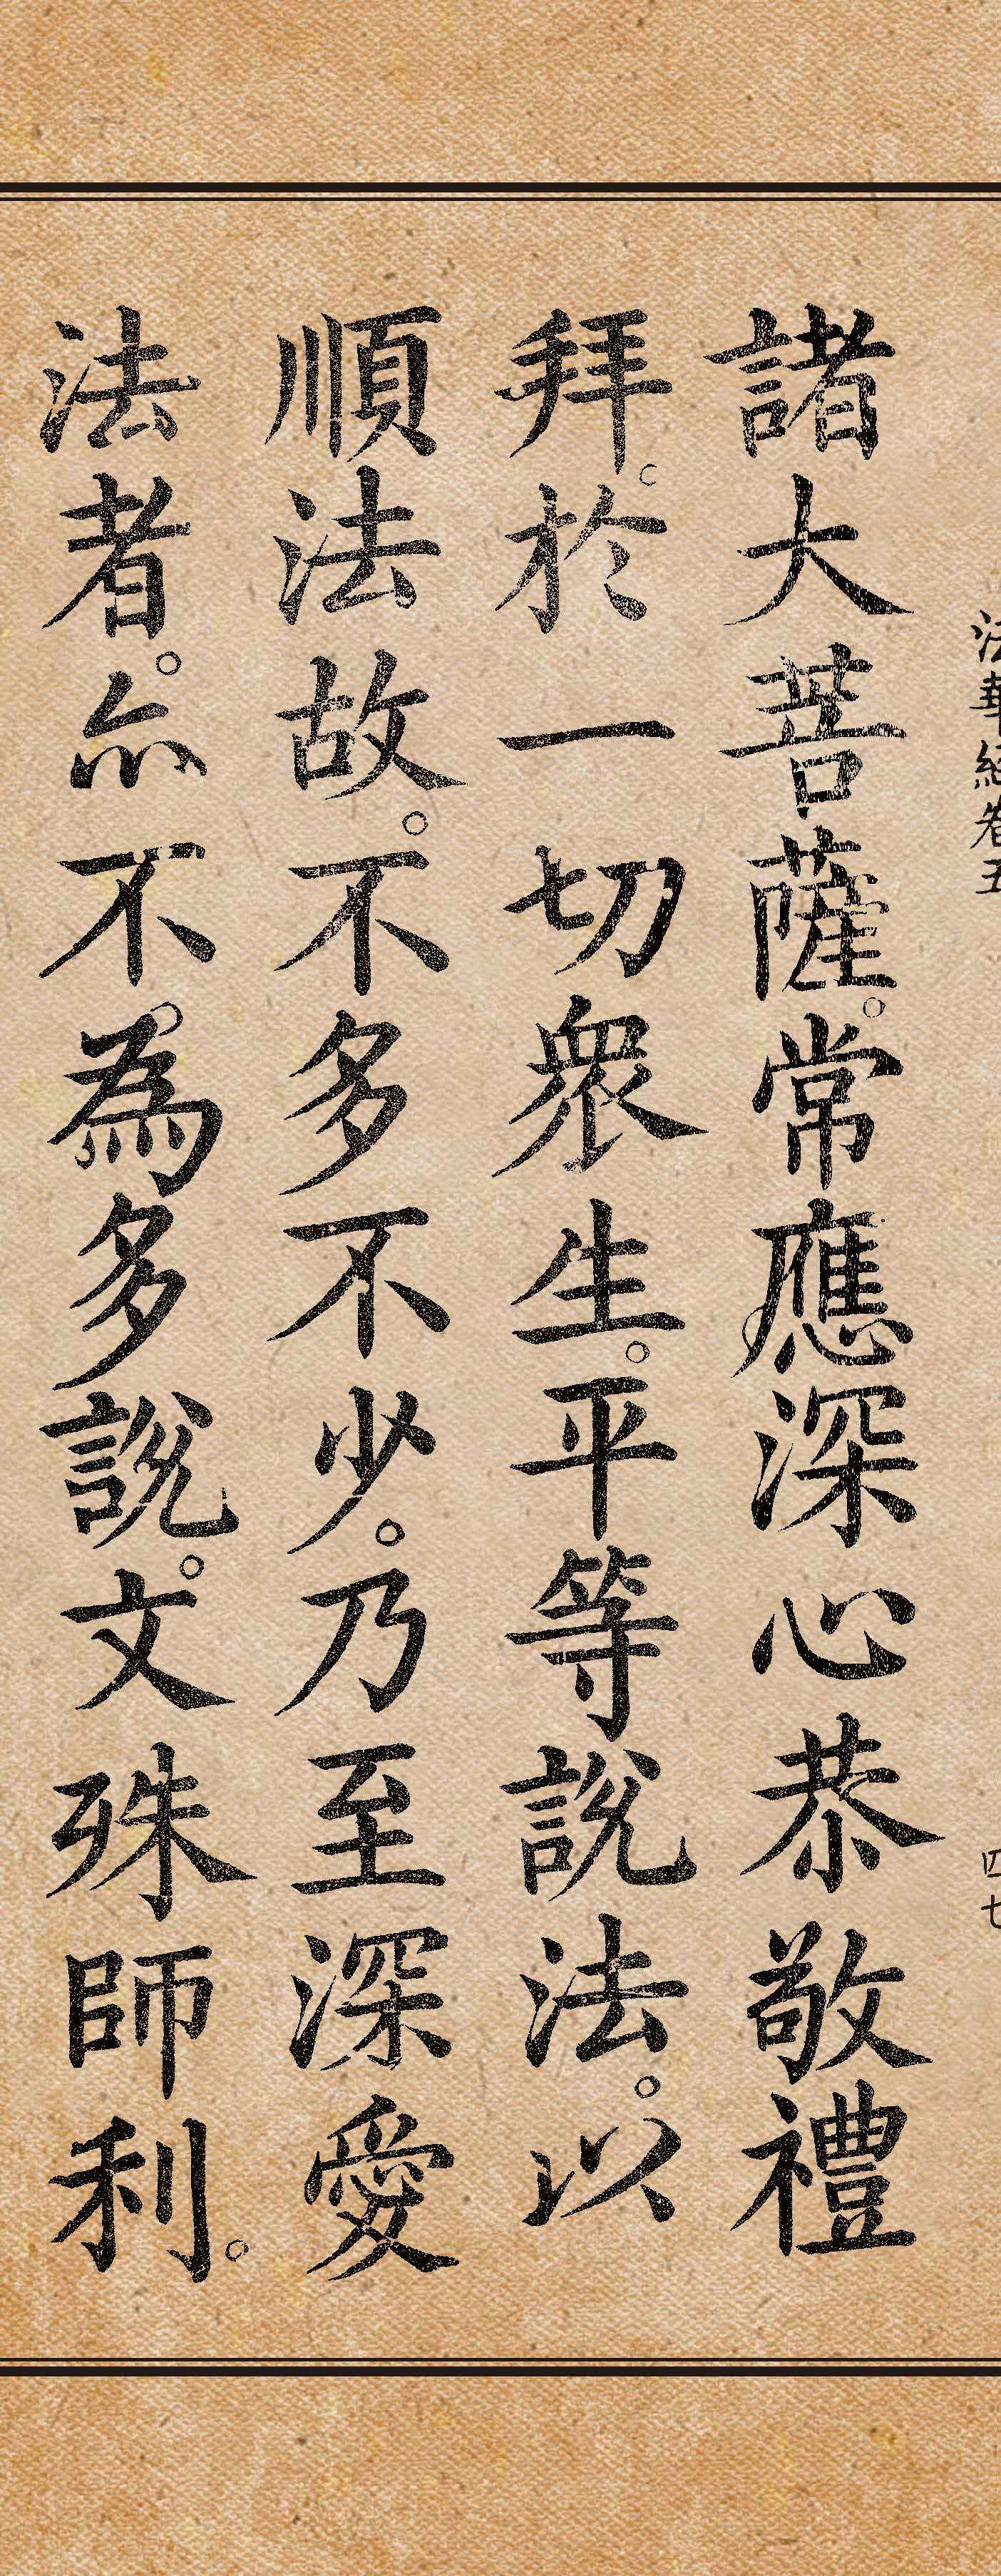 法華經卷五
四七
諸大菩薩。常應深心恭敬禮
拜。於一切衆生。平等說法。以
順法故。不多不少。乃至深愛
法者。亦不為多說。文殊師利。